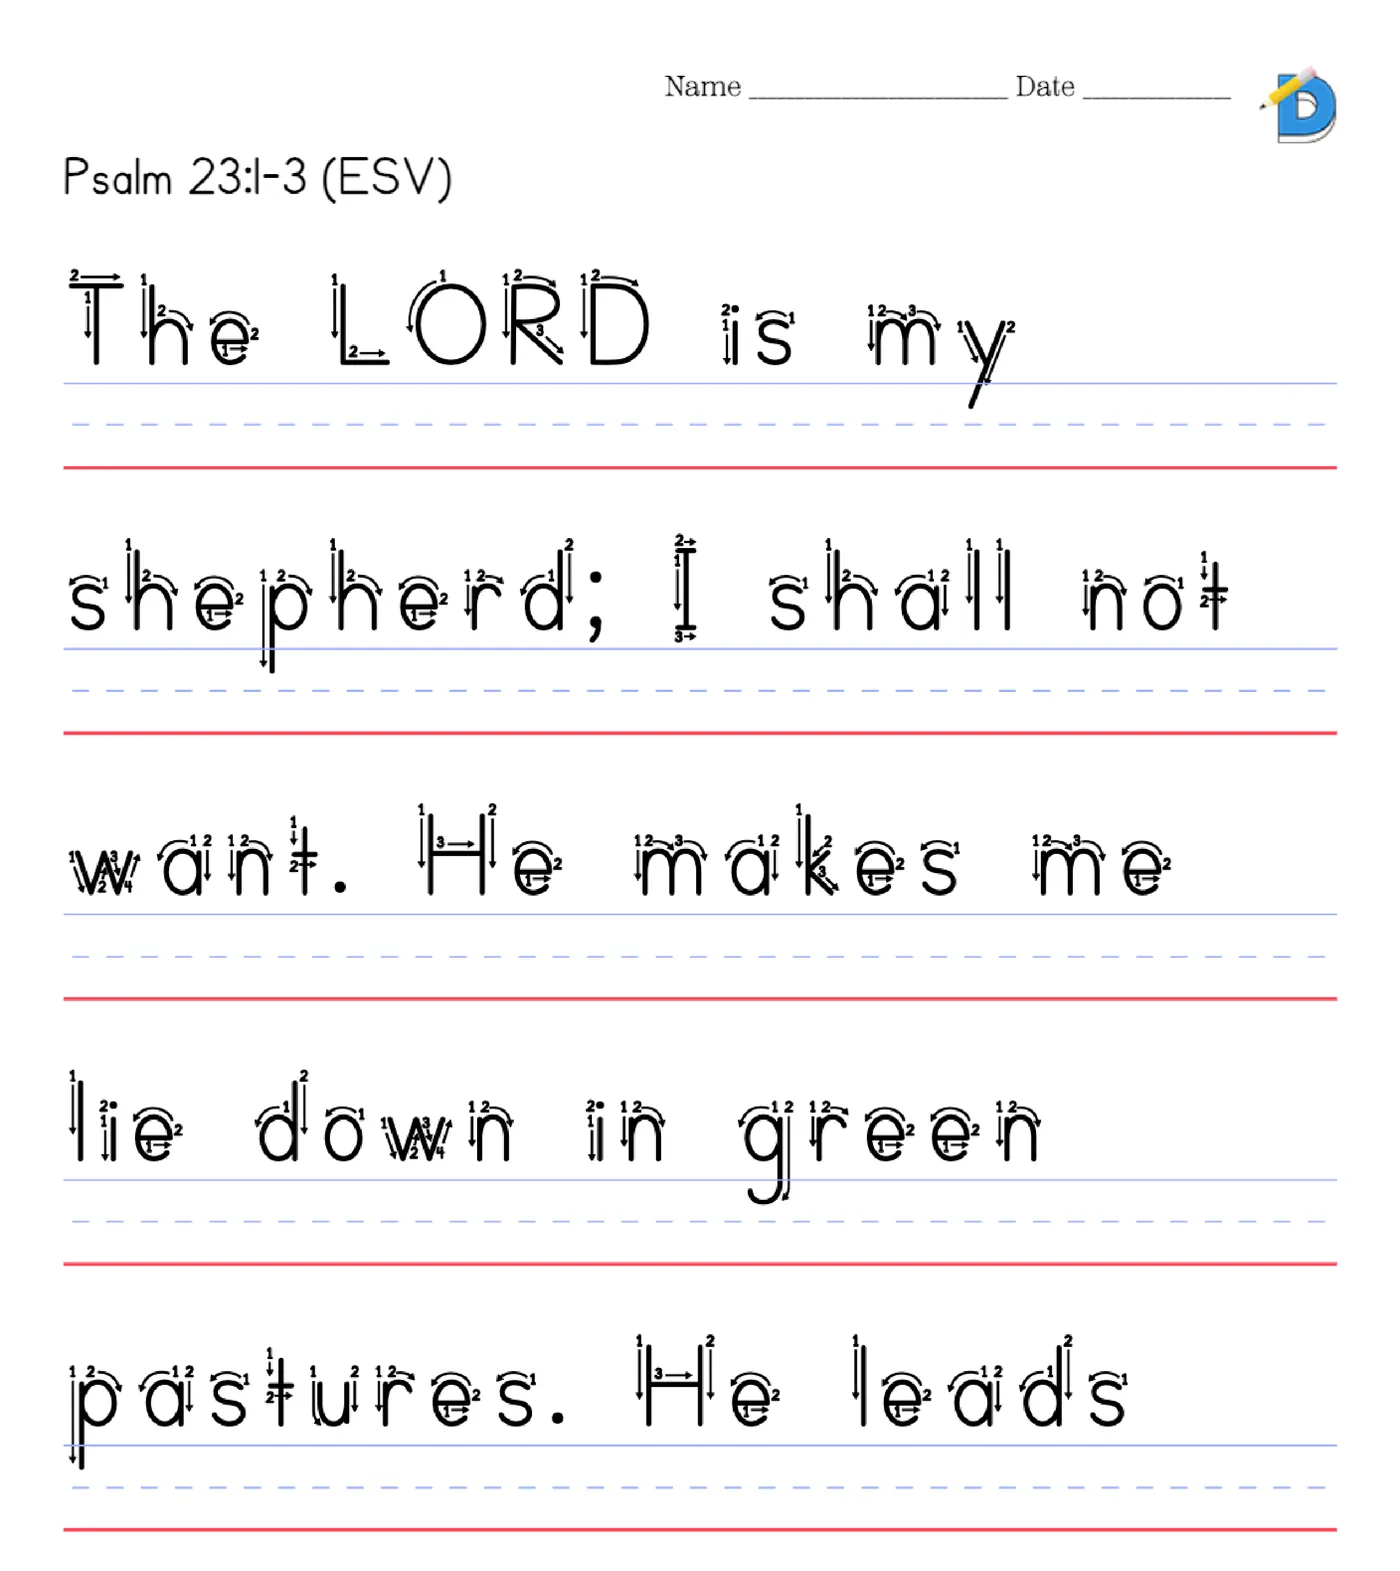 Name ____________________ Date ___________
Psalm 23:1-3 (ESV)
The LORD is my
shepherd; I shall not
want. He makes me
lie down in green
pastures. He leads